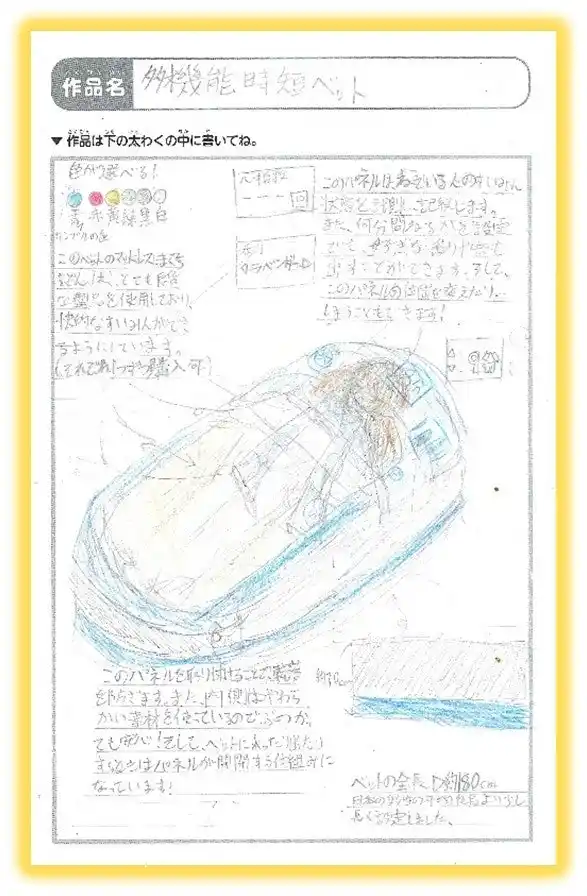 作品名
多機能時短ベット
▼作品は下の太わくの中に書いてね。
色が選べる!
青 赤 黄 緑 黒 白
サンプルの色
このベットのマットレス、まくら
な製品を使用しており、
快適なすいみんができ
るようにしています。
このパネルはねている人のすいみん
状態を計測し、記録します。
また、何分間ねるかを設定
出すことができます。そして、
このパネル自体位置を変えたり、
しまうこともできます!
ラベンダー
このパネルを取り付けることで、騒音
を防ぎます。また、内側はやわら
かい素材を使っているのでぶつか
っても安心!そして、ベットに入ったり出たり
するときはパネルが開閉する仕組みに
なっています!
ベットの全長は約180cm
日本の女性の平均身長より少し
長く設定しました。